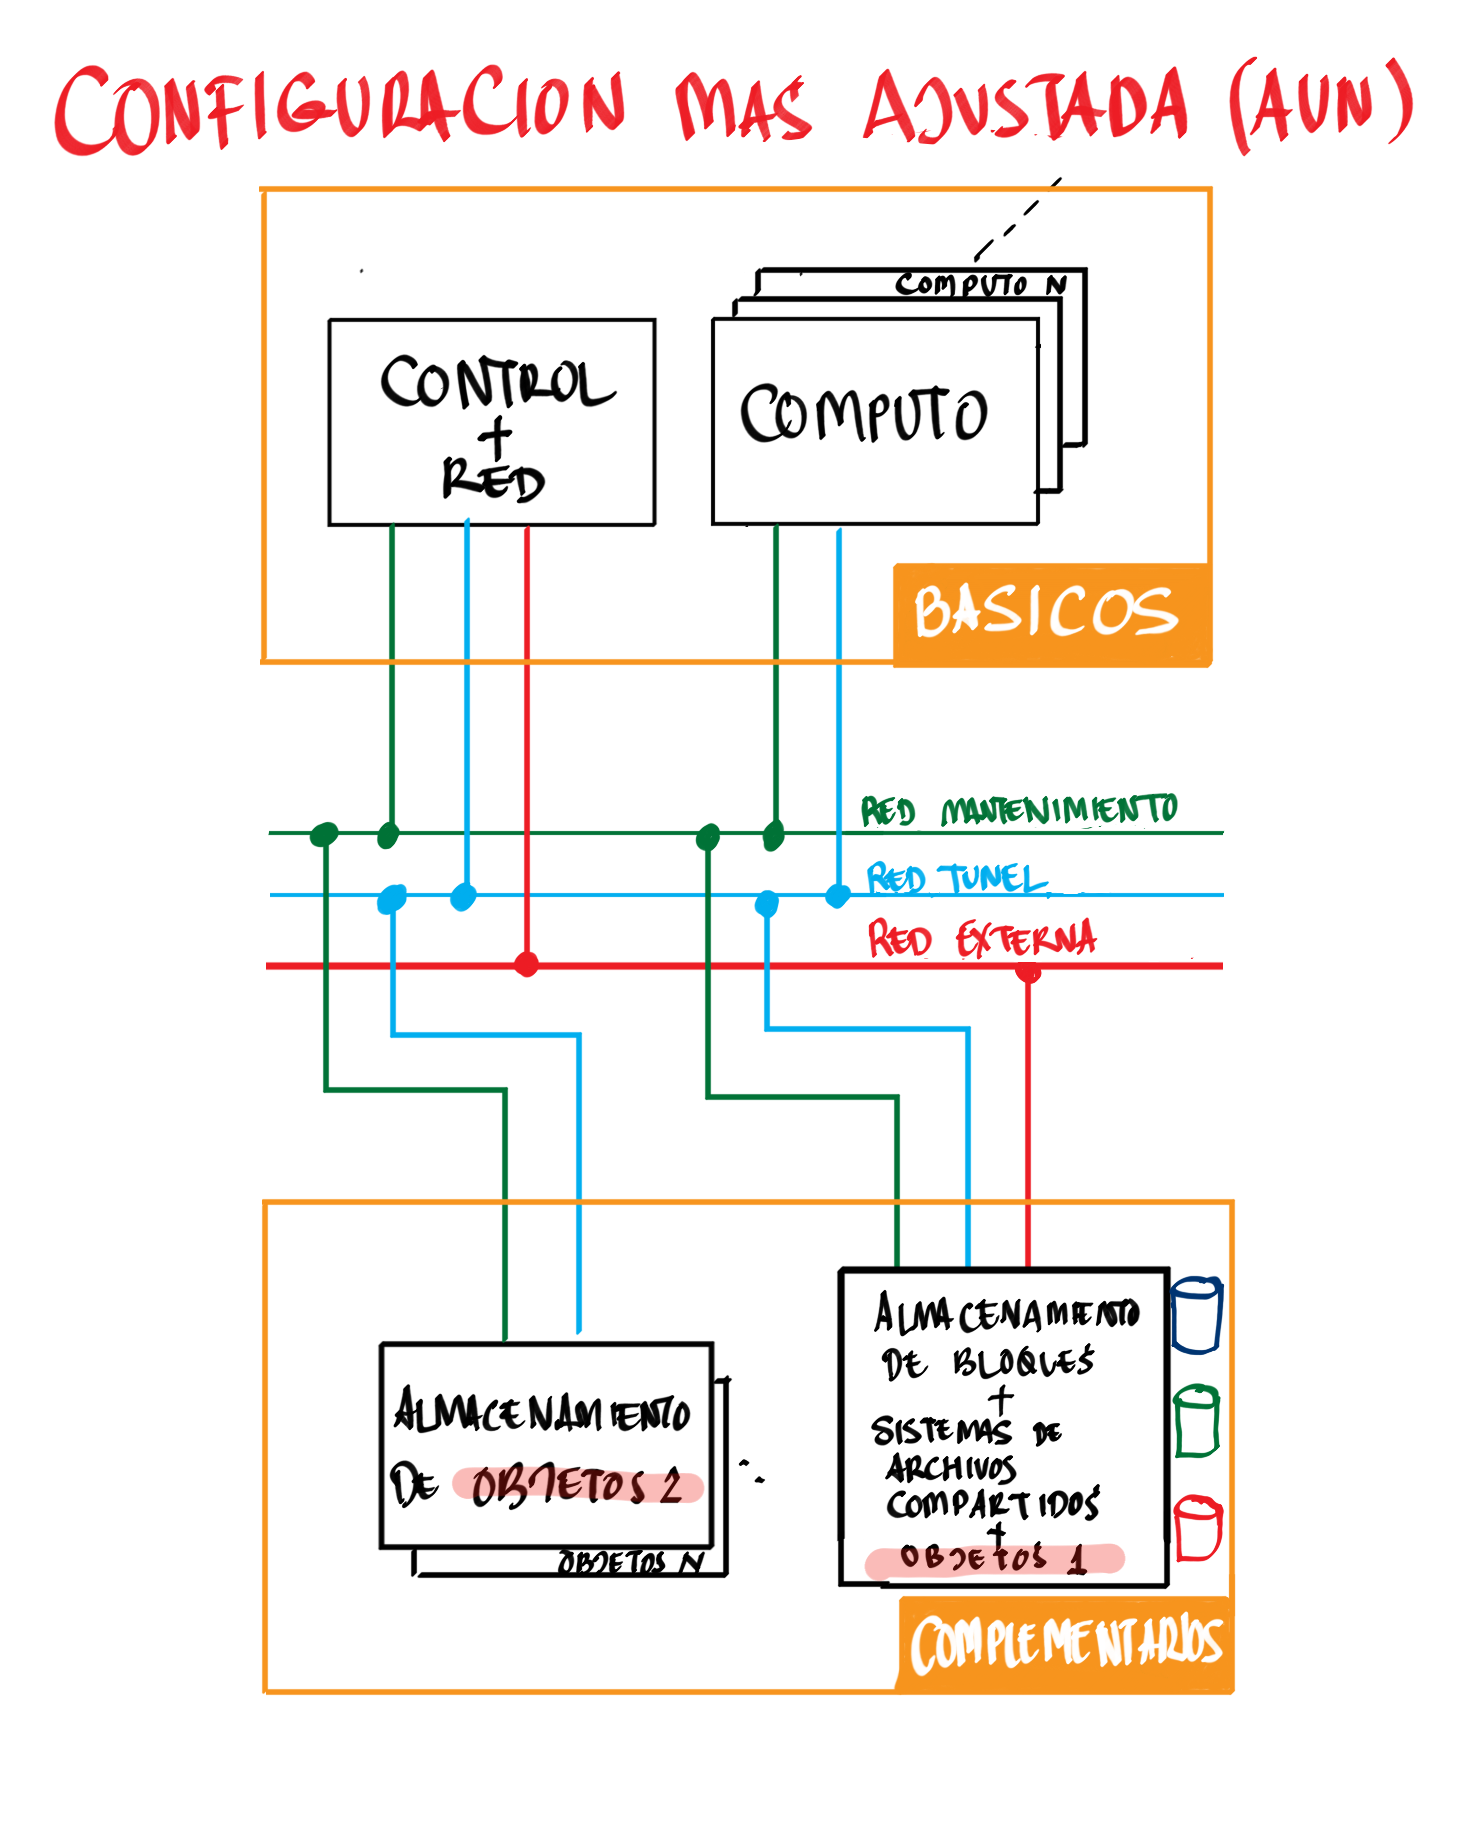 CONFIGURACION MAS AJUSTADA (AUN)
COMPUTO N
CONTROL
+
RED
COMPUTO
BASICOS
RED MANTENIMIENTO
RED TUNEL
RED EXTERNA
ALMACENAMIENTO
DE OBJETOS 2
OBJETOS N
ALMACENAMIENTO
DE BLOQUES
+
SISTEMAS DE
ARCHIVOS
COMPARTIDOS
+
OBJETOS 1
COMPLEMENTARIOS